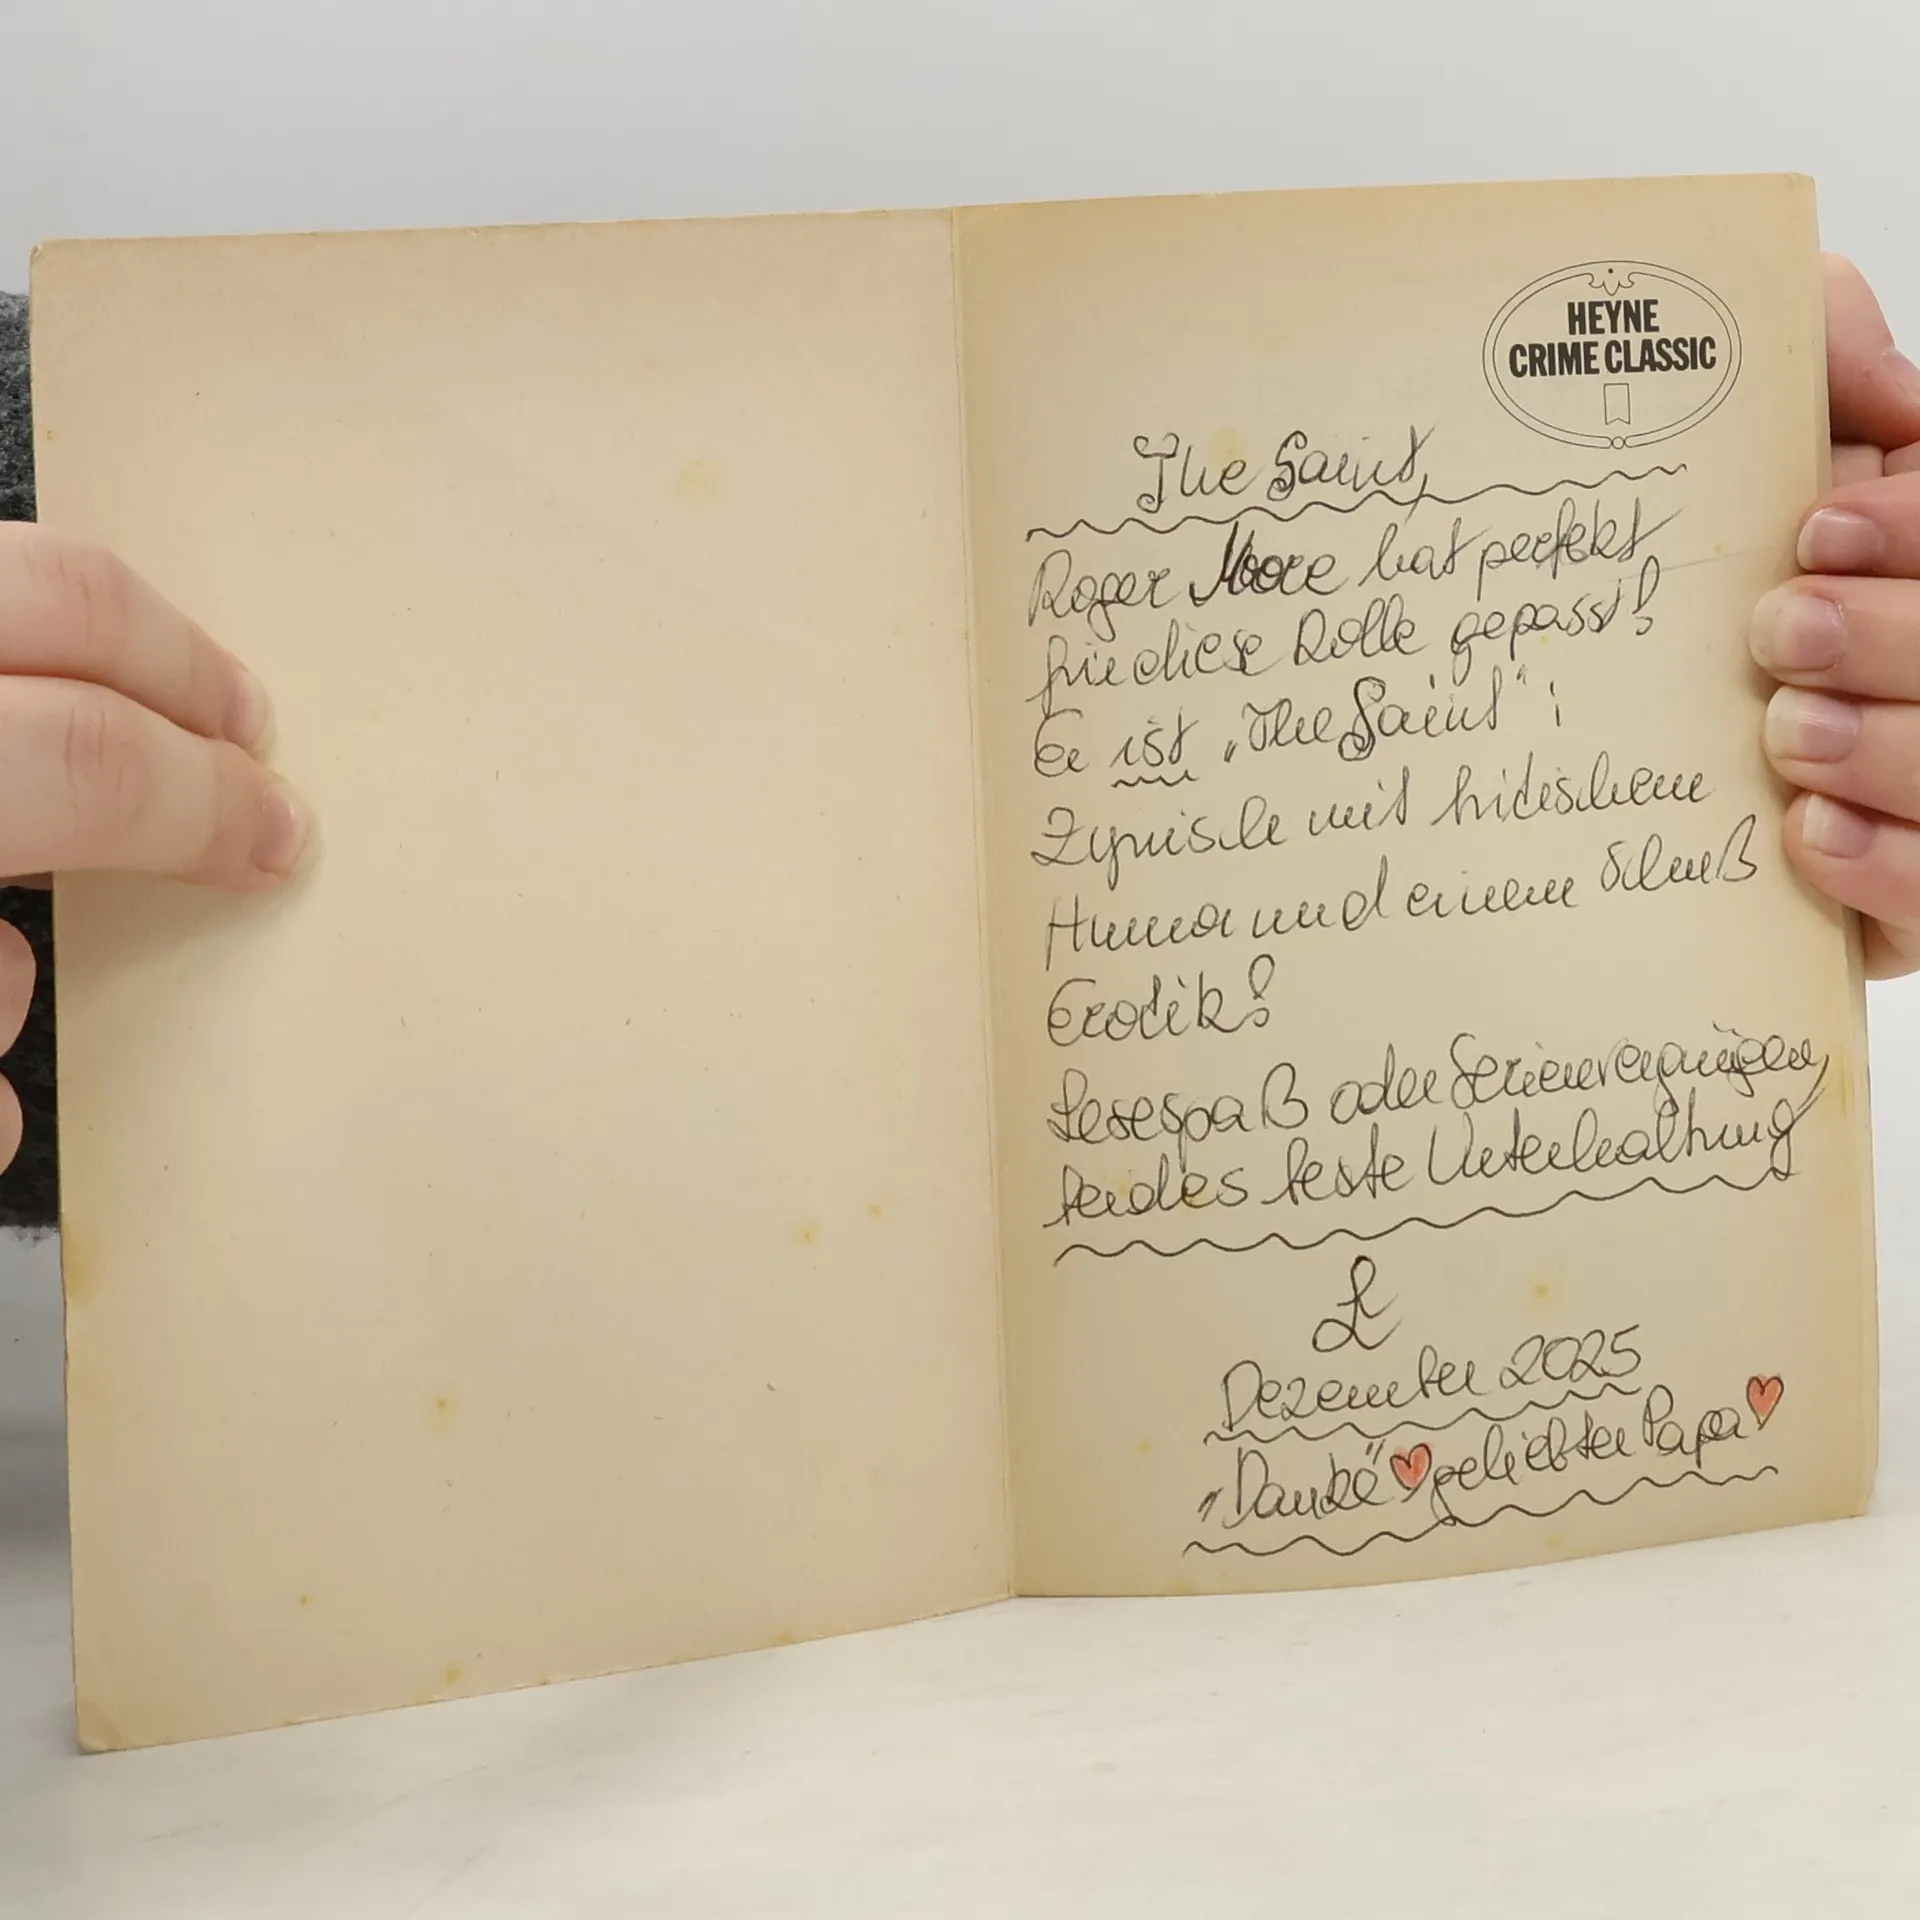 HEYNE
CRIME CLASSIC
The Saint,
Roger Moore hat perfekt
für diese Rolle gepasst!
Er ist „The Saint“;
Zynisch mit britischem
Humor und einem Schuß
Erotik!
Lesespaß oder Serienvergnügen,
beides beste Unterhaltung
L
Dezember 2025
„Danke“ ♥ geliebter Papa ♥